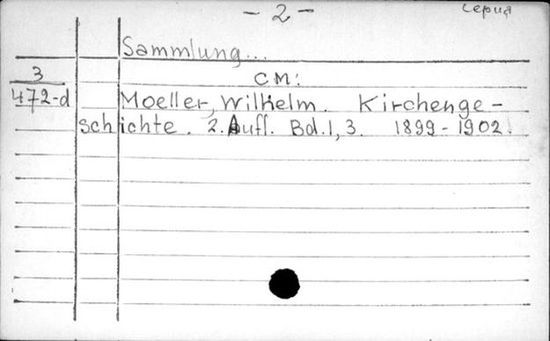 - 2 -
серия
Sammlung...
3
см:
472-d
Moeller, Wilhelm. Kirchenge-
schichte. 2. Aufl. Bd. 1, 3. 1899-1902.